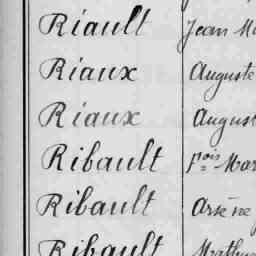 Riault Jean
Riaux Auguste
Riaux August
Ribault fçois Mar
Ribault Arsène
Ribault Mathur